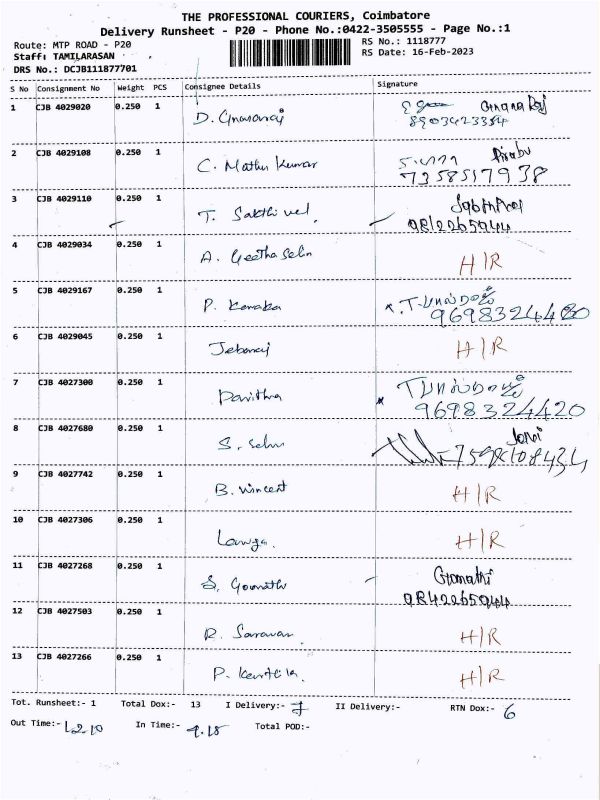 THE PROFESSIONAL COURIERS, Coimbatore
Delivery Runsheet - P20 - Phone No.:0422-3505555 - Page No.:1
Route: MTP ROAD - P20 RS No.: 1118777
Staff: TAMILARASAN RS Date: 16-Feb-2023
DRS No.: DCJB111877701
S No Consignment No Weight PCS Consignee Details Signature
1 CJB 4029020 0.250 1 D. Gnanaraj Gnana Raj
8903423384
2 CJB 4029108 0.250 1 C. Mathu Kumar Pirabu
7358517938
3 CJB 4029110 0.250 1 T. Sakthi vel.
4 CJB 4029034 0.250 1 A. Geetha Selvi H|R
5 CJB 4029167 0.250 1 P. Kanaka
9698324420
6 CJB 4029045 0.250 1 Jebaraj H|R
7 CJB 4027300 0.250 1 Pavithra
9698324420
8 CJB 4027680 0.250 1 S. Selvi
9 CJB 4027742 0.250 1 B. Vincent H|R
10 CJB 4027306 0.250 1 H|R
11 CJB 4027268 0.250 1 S. Gomathi Gomathi
9842265944
12 CJB 4027503 0.250 1 R. Saravan. H|R
13 CJB 4027266 0.250 1 P. H|R
Tot. Runsheet:- 1 Total Dox:- 13 I Delivery:- 7 II Delivery:- RTN Dox:- 6
Out Time:- 12.10 In Time:- 9.15 Total POD:-